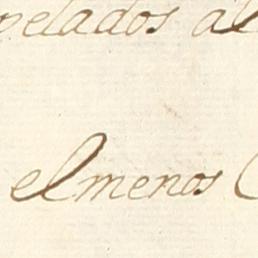 pelados al
elmenos